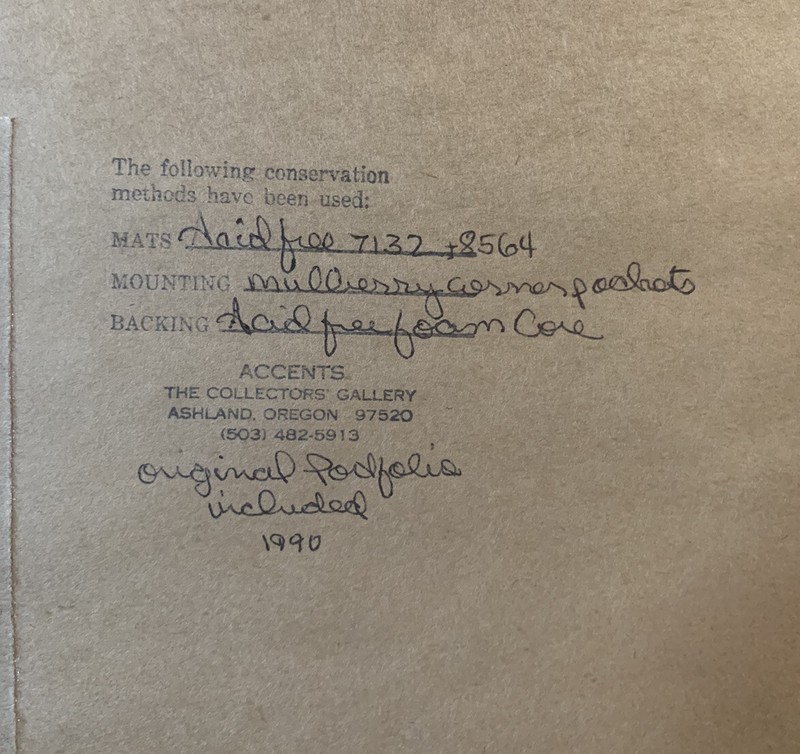 The following conservation
methods have been used:
MATS Acid free 7132 + 8564
MOUNTING mulberry corner pockets
BACKING Acid free foam Core
ACCENTS
THE COLLECTORS' GALLERY
ASHLAND, OREGON 97520
(503) 482-5913
original Podfolio
included
1990